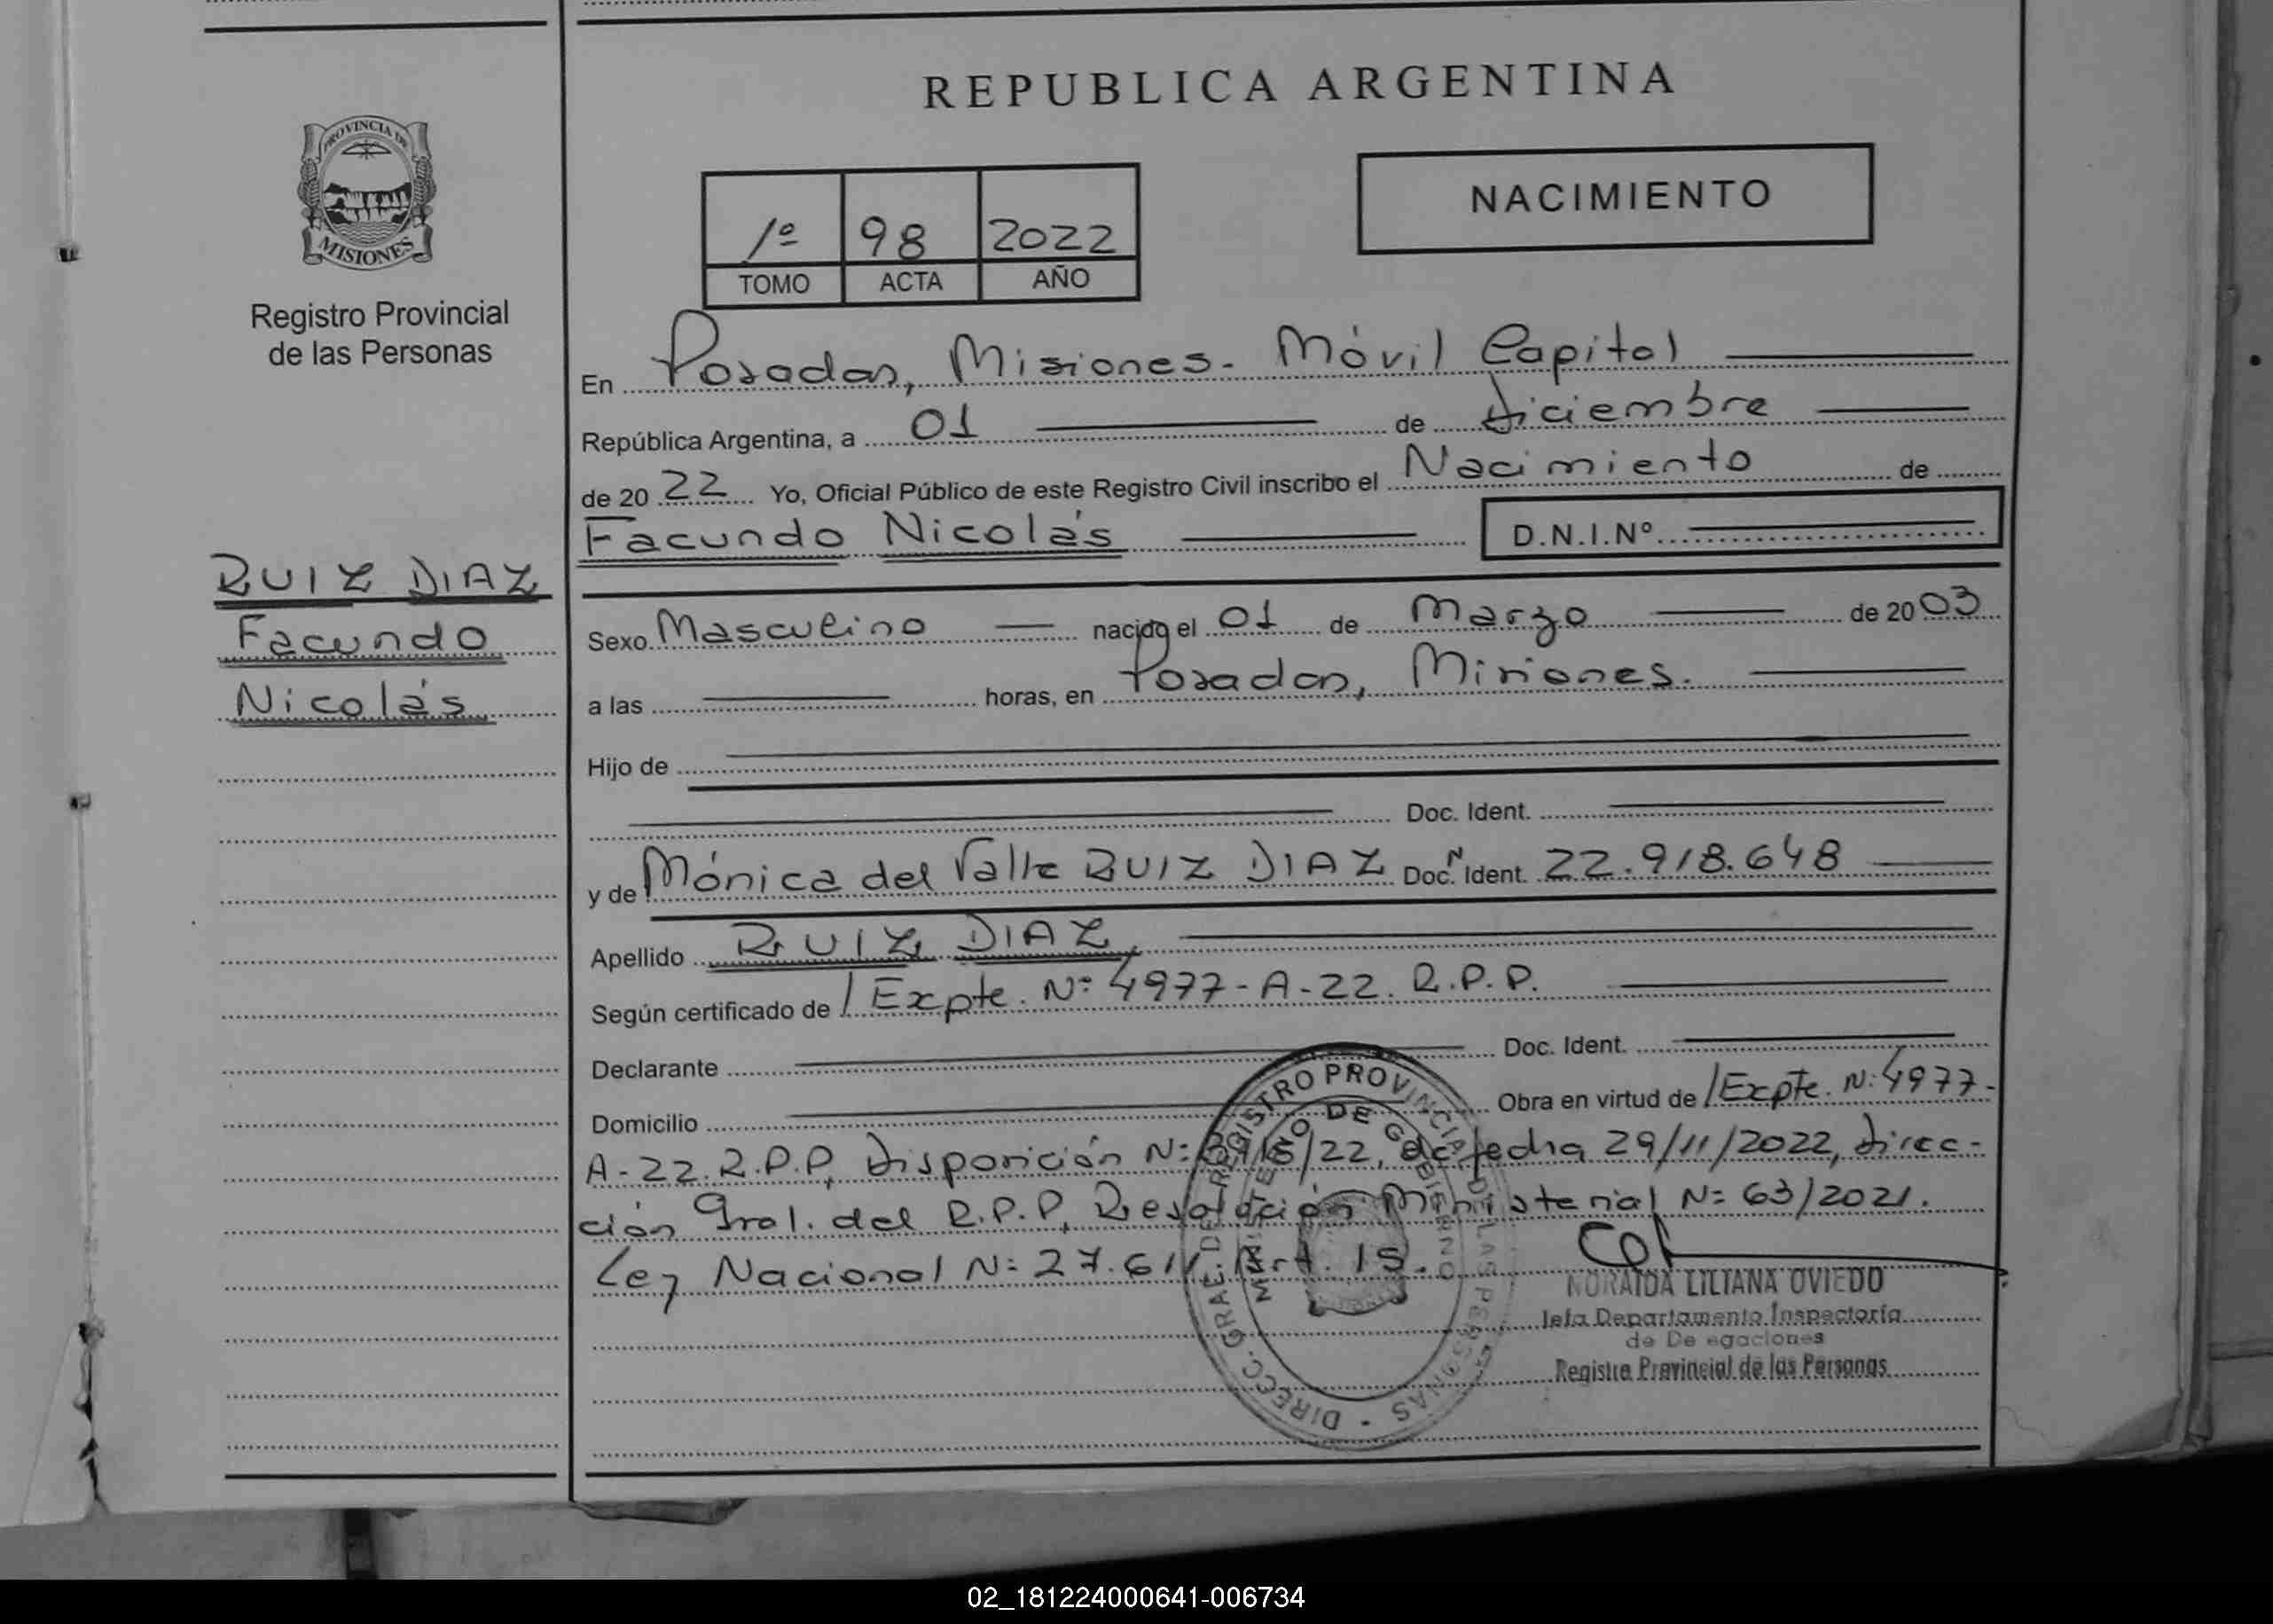 REPUBLICA ARGENTINA
PROVINCIA DE
MISIONES
Registro Provincial
de las Personas
NACIMIENTO
1º 98 2022
TOMO ACTA AÑO
En Posadas, Misiones. Móvil Capital
República Argentina, a 01 de diciembre
de 20 22 Yo, Oficial Público de este Registro Civil inscribo el Nacimiento de
Facundo Nicolás D.N.I.Nº
RUIZ DIAZ
Facundo
Nicolás
Sexo Masculino nacido el 01 de Marzo de 20 03
a las horas, en Posadas, Misiones.
Hijo de
Doc. Ident.
y de Mónica del Valle RUIZ DIAZ Doc. N Ident. 22.918.648
Apellido RUIZ DIAZ,
Según certificado de / Expte. Nº 4977-A-22. R.P.P.
Declarante Doc. Ident.
Domicilio Obra en virtud de / Expte. Nº 4977-
A-22. R.P.P, Disposición Nº /22, de fecha 29/11/2022, Direc-
ción Gral. del R.P.P, Resolución Ministerial Nº 63/2021.
Ley Nacional Nº 27.611. Art. 15.
DIRECC. GRAL. DEL REGISTRO PROVINCIAL DE LAS PERSONAS
MINISTERIO DE GOBIERNO
NORAIDA LILIANA OVIEDO
Jefa Departamento Inspectoría
de Delegaciones
Registro Provincial de las Personas
02_181224000641-006734